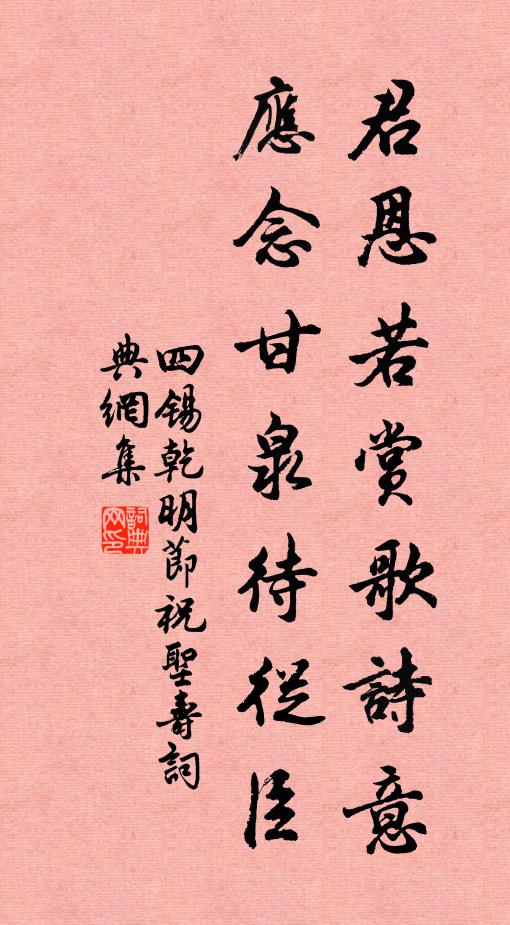 君恩若賞歌詩意
應念甘泉待從臣
四錫乾明節祝聖壽詞
典網集
詞典網印